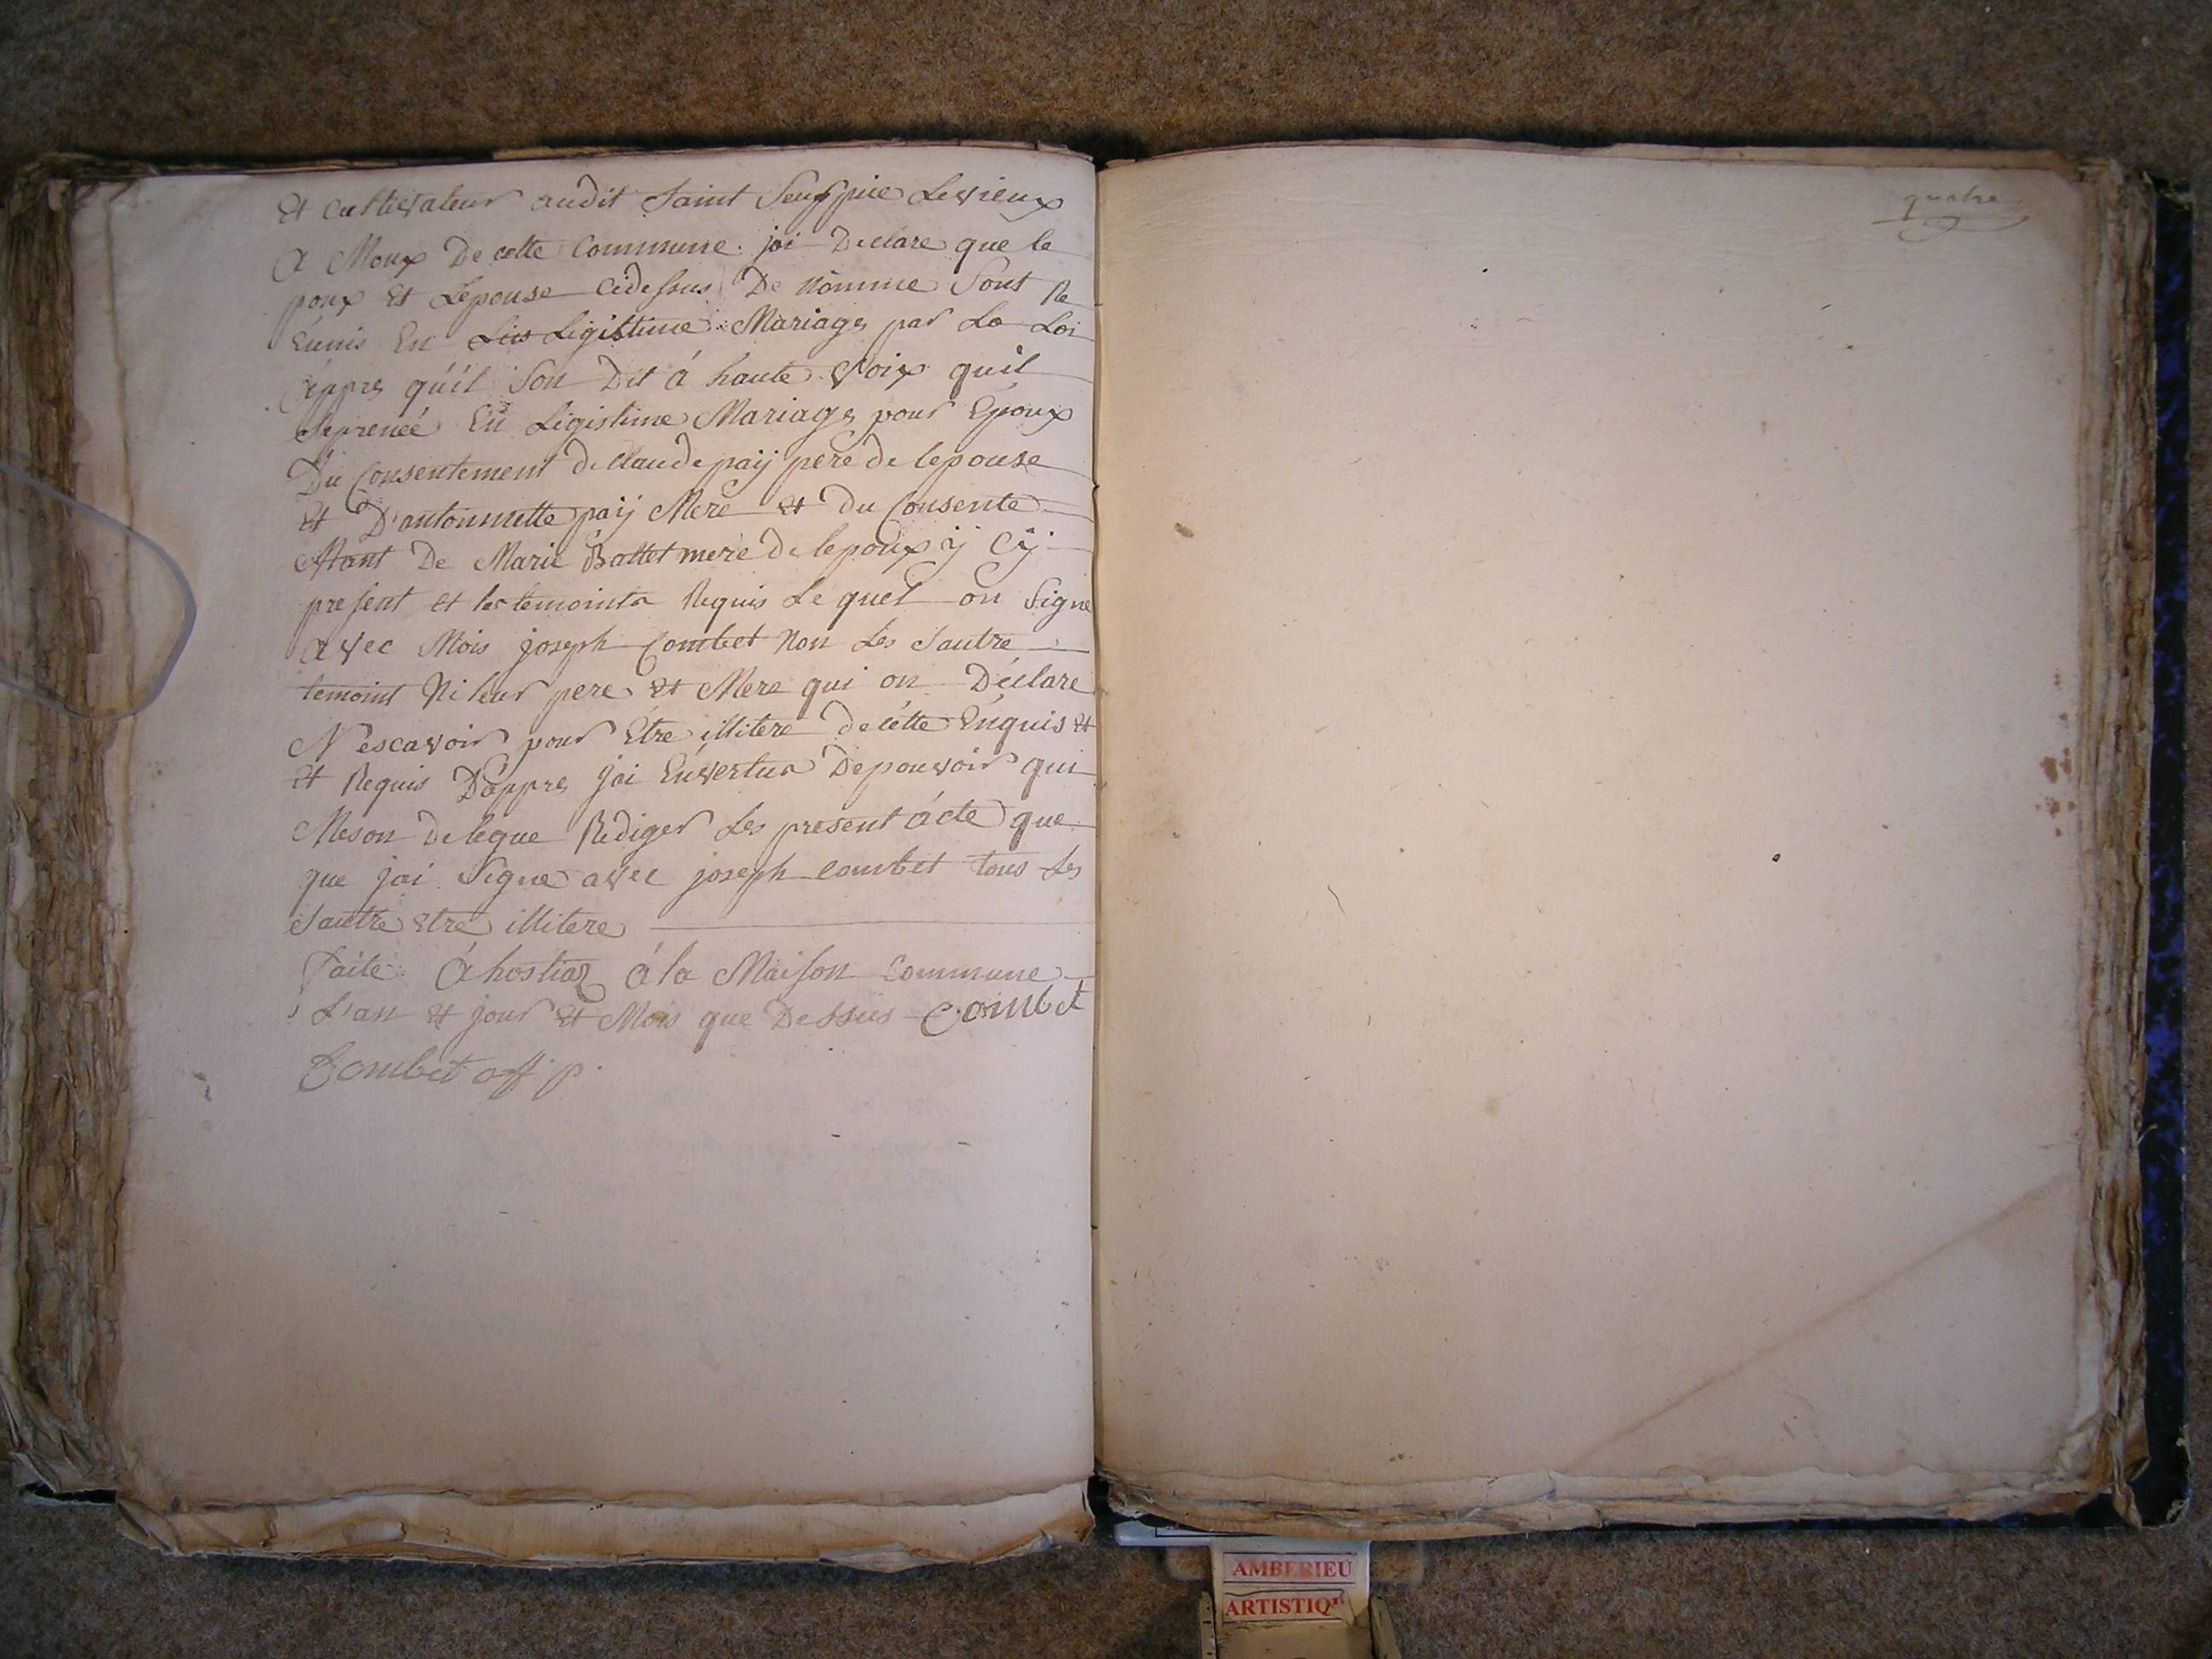 Et cultivateur audit Saint Levieux
a Moux De cette Commune. joi Declare que le
poux Et Lepouse cidessus De nomme Sont Re
Eunis En Ligittime Mariage par La Loi
appre qu'il Son Dit á haute Voix quil
Seprenée En Ligistime Mariage pour Epoux
Du Consentement de Claude paÿ pere de lepouse
Et D'antoinnette paÿ Mere Et Du Consente
De Marie Battet mere de lepoux ÿ Cÿ
present et les temointa Requis Lequel on Signe
avec Mois joseph Combet Non Les Sautre
temoint Ni leur pere Et Mere qui on Déclare
N'escavoir pour Etre illitere de cétte Enquis Et
Et Requis Dáppre jai Envertua Depouvoir qui
Meson Delegue Rediger Les present ácte que
que jai Signe avec joseph Combet tous Les
Sautre Etre illitere
Faite á hostiaz á la Maison Commune
L'an Et jour Et Mois que Dessus Combet
Combet off p.
quatre
AMBERIEU
ARTISTIQ